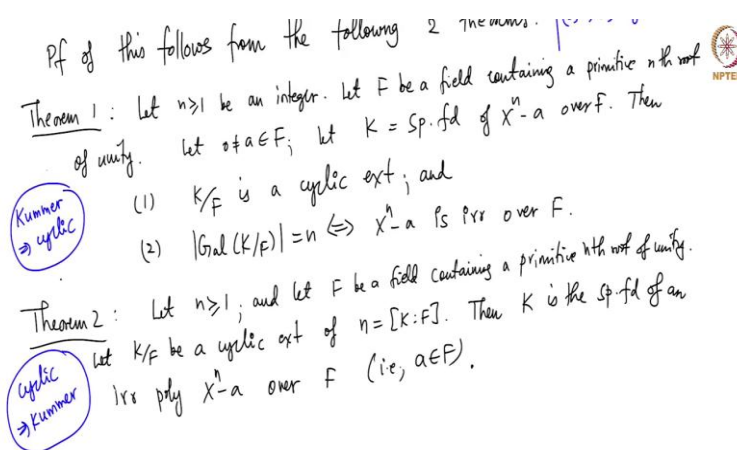 Pf of this follows from the following 2
Theorem 1 : Let n≥1 be an integer. Let F be a field containing a primitive nth root
of unity. Let 0≠a∈F; let K = Sp.fd of Xⁿ-a over F. Then
(1) K/F is a cyclic ext; and
(2) |Gal(K/F)| = n ⇔ Xⁿ-a is irr over F.
Kummer
⇒ cyclic
Theorem 2 : Let n≥1, and let F be a field containing a primitive nth root of unity.
Let K/F be a cyclic ext of n=[K:F]. Then K is the sp.fd of an
irr poly Xⁿ-a over F (i.e., a∈F).
cyclic
⇒ Kummer
NPTEL